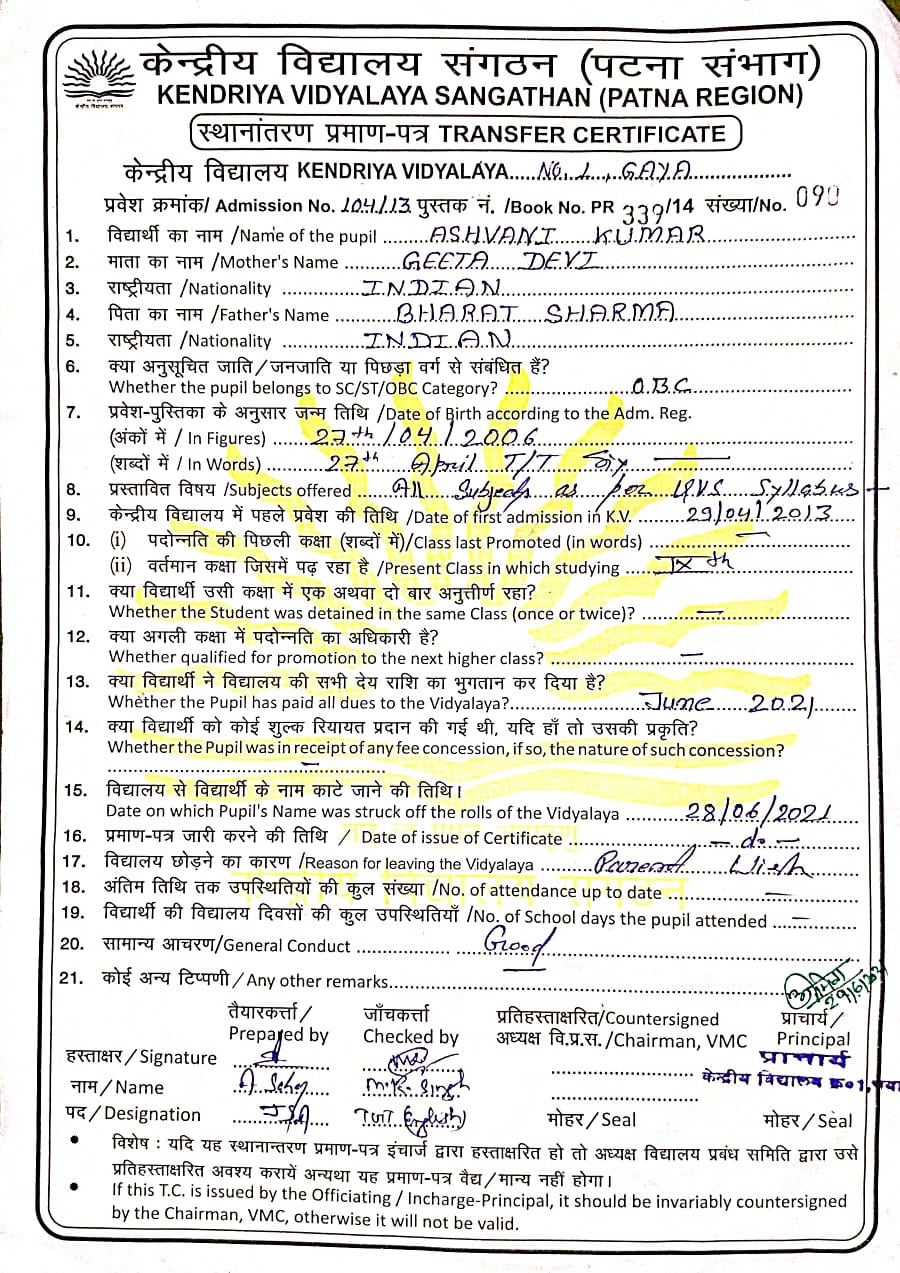 केन्द्रीय विद्यालय संगठन (पटना संभाग)
KENDRIYA VIDYALAYA SANGATHAN (PATNA REGION)
स्थानांतरण प्रमाण-पत्र TRANSFER CERTIFICATE
केन्द्रीय विद्यालय KENDRIYA VIDYALAYA.....NO. 1, GAYA....................
प्रवेश क्रमांक/ Admission No. 104/13 पुस्तक नं. /Book No. PR 339/14 संख्या/No. 090
1. विद्यार्थी का नाम /Name of the pupil ........ASHVANI KUMAR
2. माता का नाम /Mother's Name .........GEETA DEVI
3. राष्ट्रीयता /Nationality ..............INDIAN
4. पिता का नाम /Father's Name ...........BHARAT SHARMA
5. राष्ट्रीयता /Nationality ..............INDIAN
6. क्या अनुसूचित जाति/जनजाति या पिछड़ा वर्ग से संबंधित हैं?
Whether the pupil belongs to SC/ST/OBC Category? ..................O.B.C
7. प्रवेश-पुस्तिका के अनुसार जन्म तिथि /Date of Birth according to the Adm. Reg.
(अंकों में / In Figures) ......27th/04/2006
(शब्दों में / In Words) ........27th April T/T Six
8. प्रस्तावित विषय /Subjects offered .....All Subjects as per KVS Syllabus
9. केन्द्रीय विद्यालय में पहले प्रवेश की तिथि /Date of first admission in K.V. ........29/04/2013
10. (i) पदोन्नति की पिछली कक्षा (शब्दों में)/Class last Promoted (in words) ............—
(ii) वर्तमान कक्षा जिसमें पढ़ रहा है /Present Class in which studying .....IXth
11. क्या विद्यार्थी उसी कक्षा में एक अथवा दो बार अनुत्तीर्ण रहा?
Whether the Student was detained in the same Class (once or twice)? ........—
12. क्या अगली कक्षा में पदोन्नति का अधिकारी है?
Whether qualified for promotion to the next higher class? ..................—
13. क्या विद्यार्थी ने विद्यालय की सभी देय राशि का भुगतान कर दिया है?
Whether the Pupil has paid all dues to the Vidyalaya?..................June 2021
14. क्या विद्यार्थी को कोई शुल्क रियायत प्रदान की गई थी, यदि हाँ तो उसकी प्रकृति?
Whether the Pupil was in receipt of any fee concession, if so, the nature of such concession?
..................—..................
15. विद्यालय से विद्यार्थी के नाम काटे जाने की तिथि।
Date on which Pupil's Name was struck off the rolls of the Vidyalaya ..........28/06/2021
16. प्रमाण-पत्र जारी करने की तिथि / Date of issue of Certificate..................— do —
17. विद्यालय छोड़ने का कारण /Reason for leaving the Vidyalaya ........Parent Wish
18. अंतिम तिथि तक उपस्थितियों की कुल संख्या /No. of attendance up to date ..............—
19. विद्यार्थी की विद्यालय दिवसों की कुल उपस्थितियाँ /No. of School days the pupil attended ....—
20. सामान्य आचरण/General Conduct ................Good
21. कोई अन्य टिप्पणी / Any other remarks..................
29/6/2021
तैयारकर्त्ता / जाँचकर्त्ता प्रतिहस्ताक्षरित/Countersigned प्राचार्य /
Prepared by Checked by अध्यक्ष वि.प्र.स. /Chairman, VMC Principal
प्राचार्य
हस्ताक्षर / Signature
केन्द्रीय विद्यालय क्र०1, गया
नाम / Name M.K. Singh
पद / Designation JSA TGT (English) मोहर / Seal मोहर / Seal
• विशेष : यदि यह स्थानान्तरण प्रमाण-पत्र इंचार्ज द्वारा हस्ताक्षरित हो तो अध्यक्ष विद्यालय प्रबंध समिति द्वारा उसे
प्रतिहस्ताक्षरित अवश्य करायें अन्यथा यह प्रमाण-पत्र वैद्य / मान्य नहीं होगा।
• If this T.C. is issued by the Officiating / Incharge-Principal, it should be invariably countersigned
by the Chairman, VMC, otherwise it will not be valid.